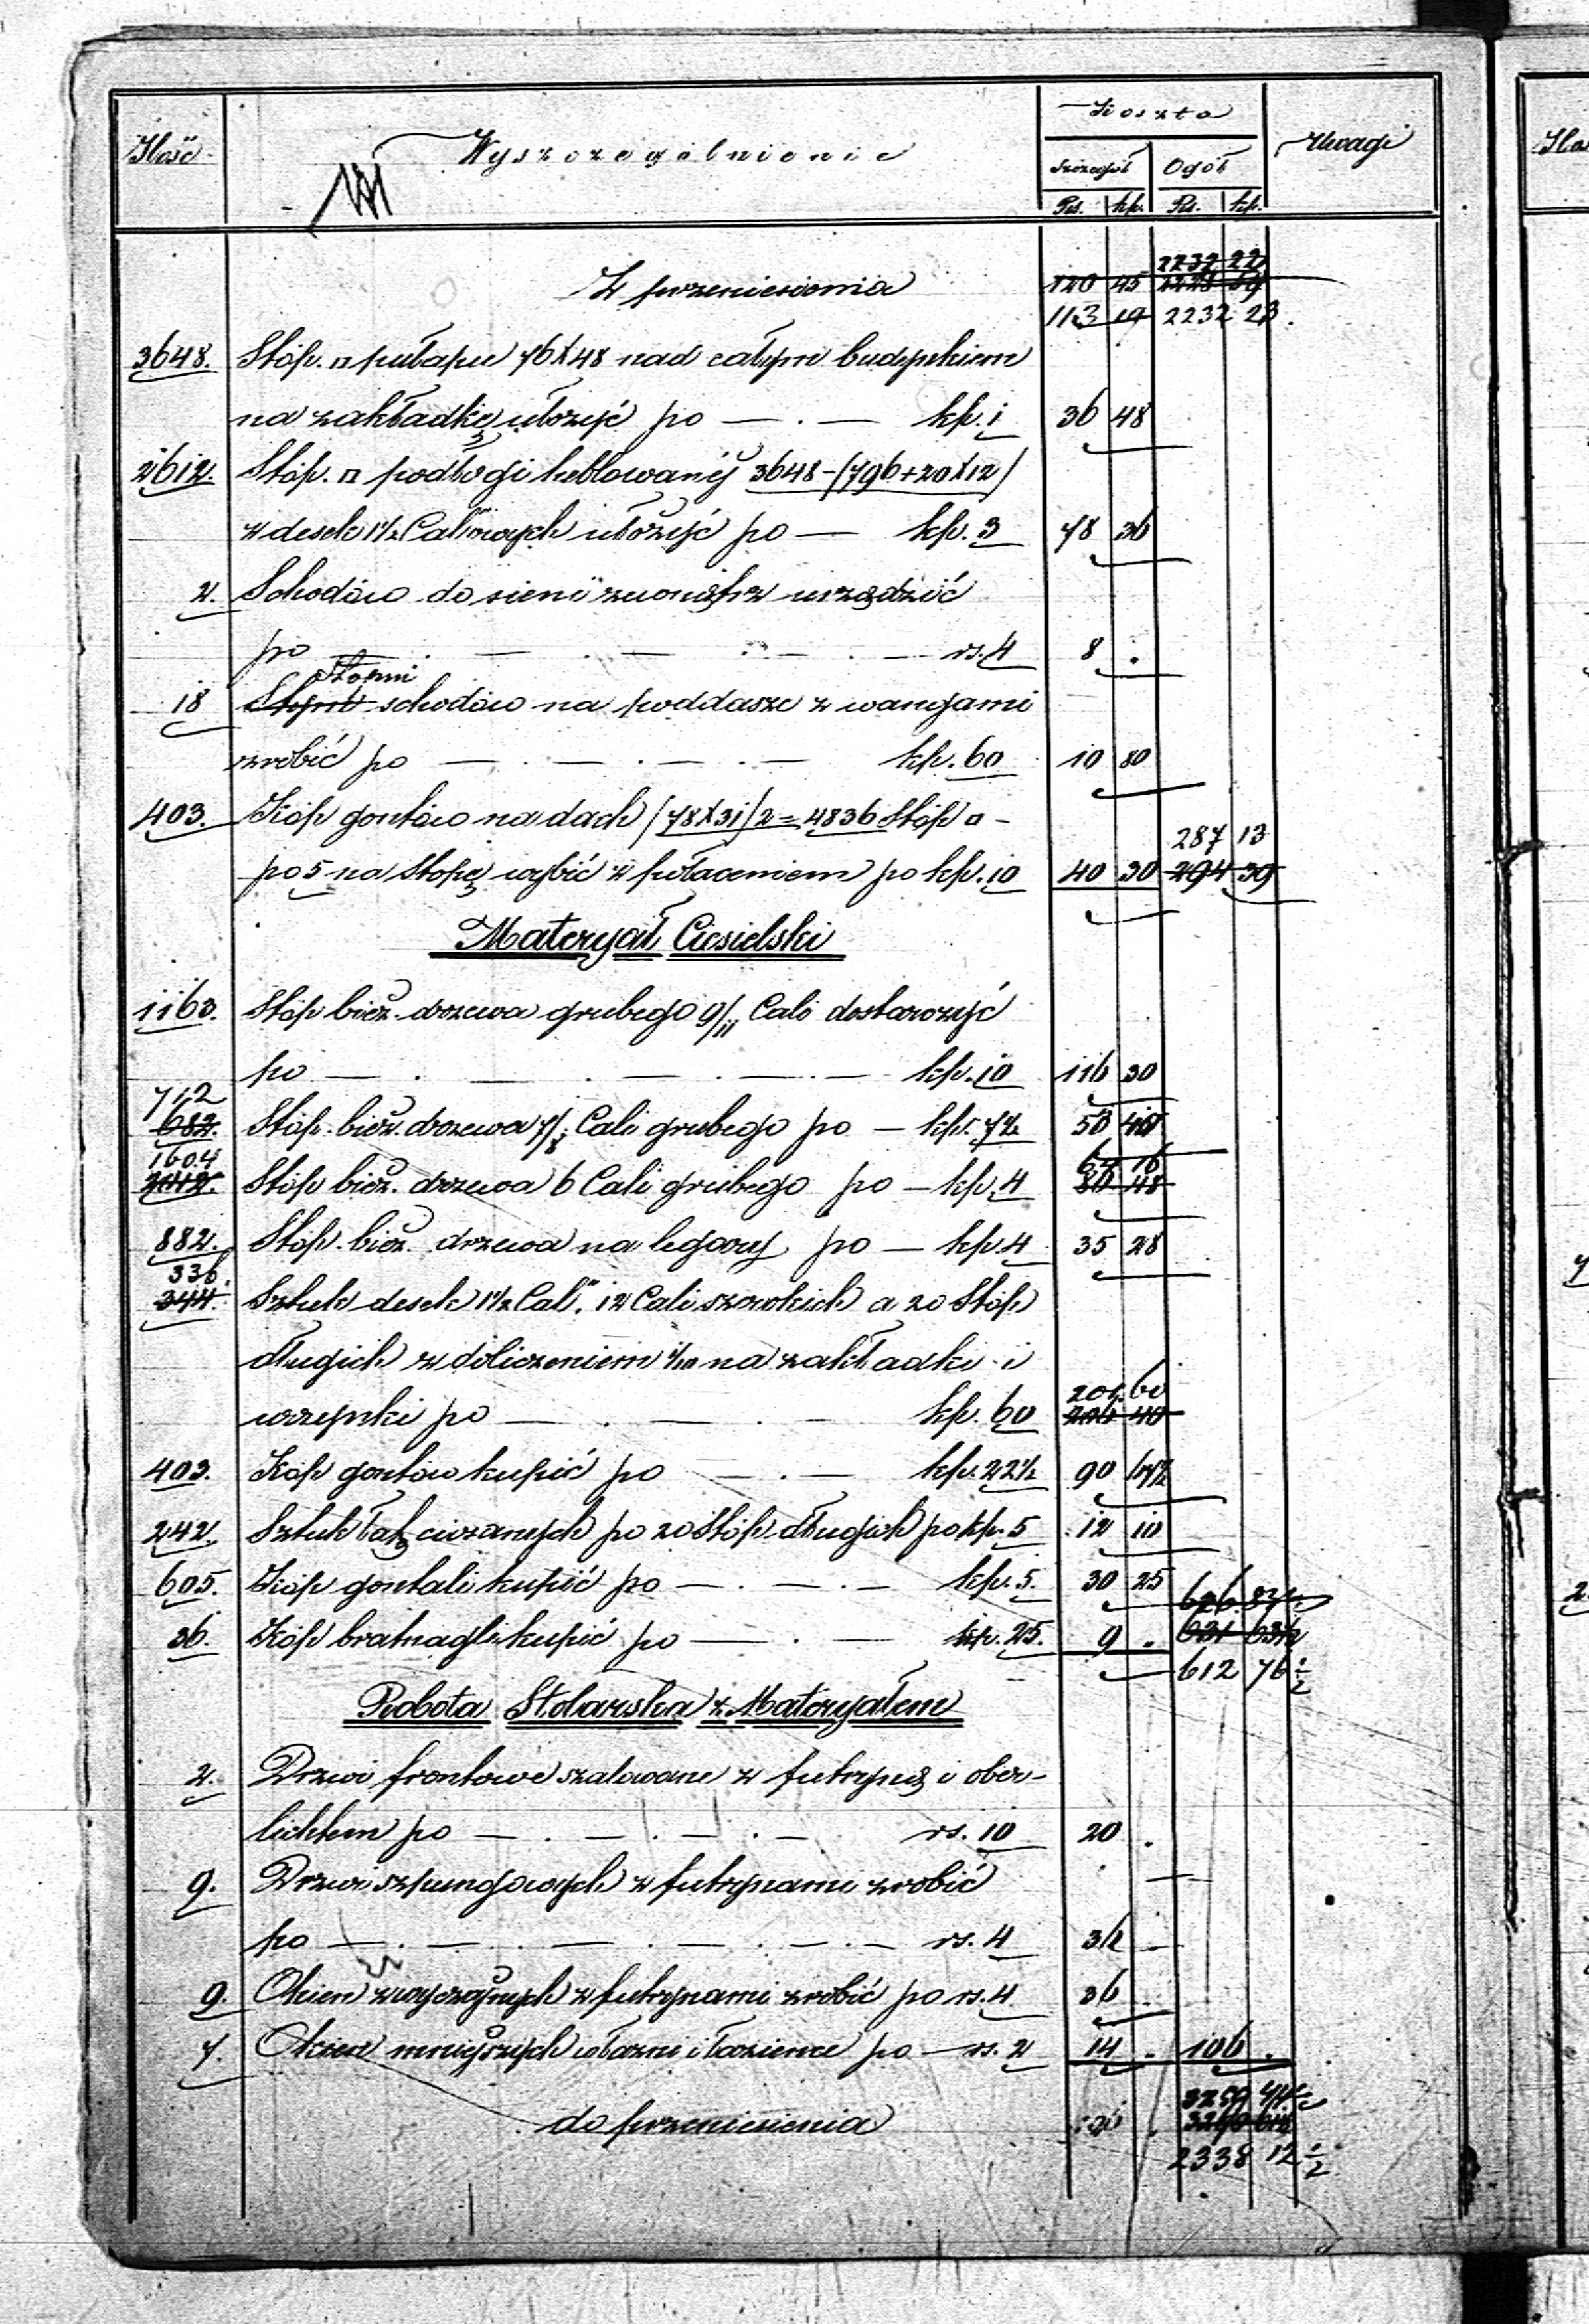 Ilość Wyszczególnienie Koszta Uwagi
Szczegół Ogół
Rs. kp. Rs. kp.
2232 22
Z przeniesienia 120 45
113 19 2232 23.
3648. Stóp. □ pułapu 76X48 nad całym budynkiem
na zakładkę ułożyć po — . — kp. 1 36 48
2612. Stóp. □ podłogi heblowanéj 3648-(796+20X12)
z desek 1½ Calowych ułożyć po — kp. 3 78 36
2. Schodów do sieni zewnątrz urządzić
po — . — . — . — . — rs. 4 8 .
Stopni
18 schodów na poddasze z wangami
zrobić po — . — . — . — kp. 60 10 80
403. Kóp gontów na dach (78X31)2=4836 Stóp □ -
287 13
po 5 na stopę wybić z połaceniem po kp. 10 40 30 294 39
Materyał Ciesielski
1163. Stóp bież. drzewa grubego 9/11 Cali dostarczyć
po — . — . — . — . — kp. 10 116 30
712
682. Stóp. bież. drzewa 7/8 Cali grubego po — kp. 7½ 53 40
1604 64 16
2142. Stóp bież. drzewa 6 Cali grubego po — kp. 4 80 48
882. Stóp. bież. drzewa na legary po — kp. 4 35 28
336.
344. Sztuk desek 1½ Cal. 12 Cali szerokich a 20 Stóp
długich z doliczeniem 1/10 na zakładki i
201 60
wrzynki po — . — . — kp. 60 206 40
403. Kóp gontów kupić po — . — kp. 22½ 90 67½
242. Sztuk łat ciczanych po 20 Stóp długich po kp. 5 12 10
605. Kóp gontali kupić po — . — . — kp. 5. 30 25
36. Kóp bratnagli kupić po — . — kp. 25. 9 . 631 63½
612 76½
Robota Stolarska z Materyałem
2. Drzwi frontowe szalowane z futryną i ober-
lichtem po — . — . — . — rs. 10 20 .
9. Drzwi szpungowych z futrynami zrobić
po — . — . — . — . — . — rs. 4 36
9. Okien zwyczajnych z futrynami zrobić po rs. 4 36
7. Okien mniejszych w łaźni i łazience po — rs. 2 14 . 106 .
do przeniesienia
2338 12½